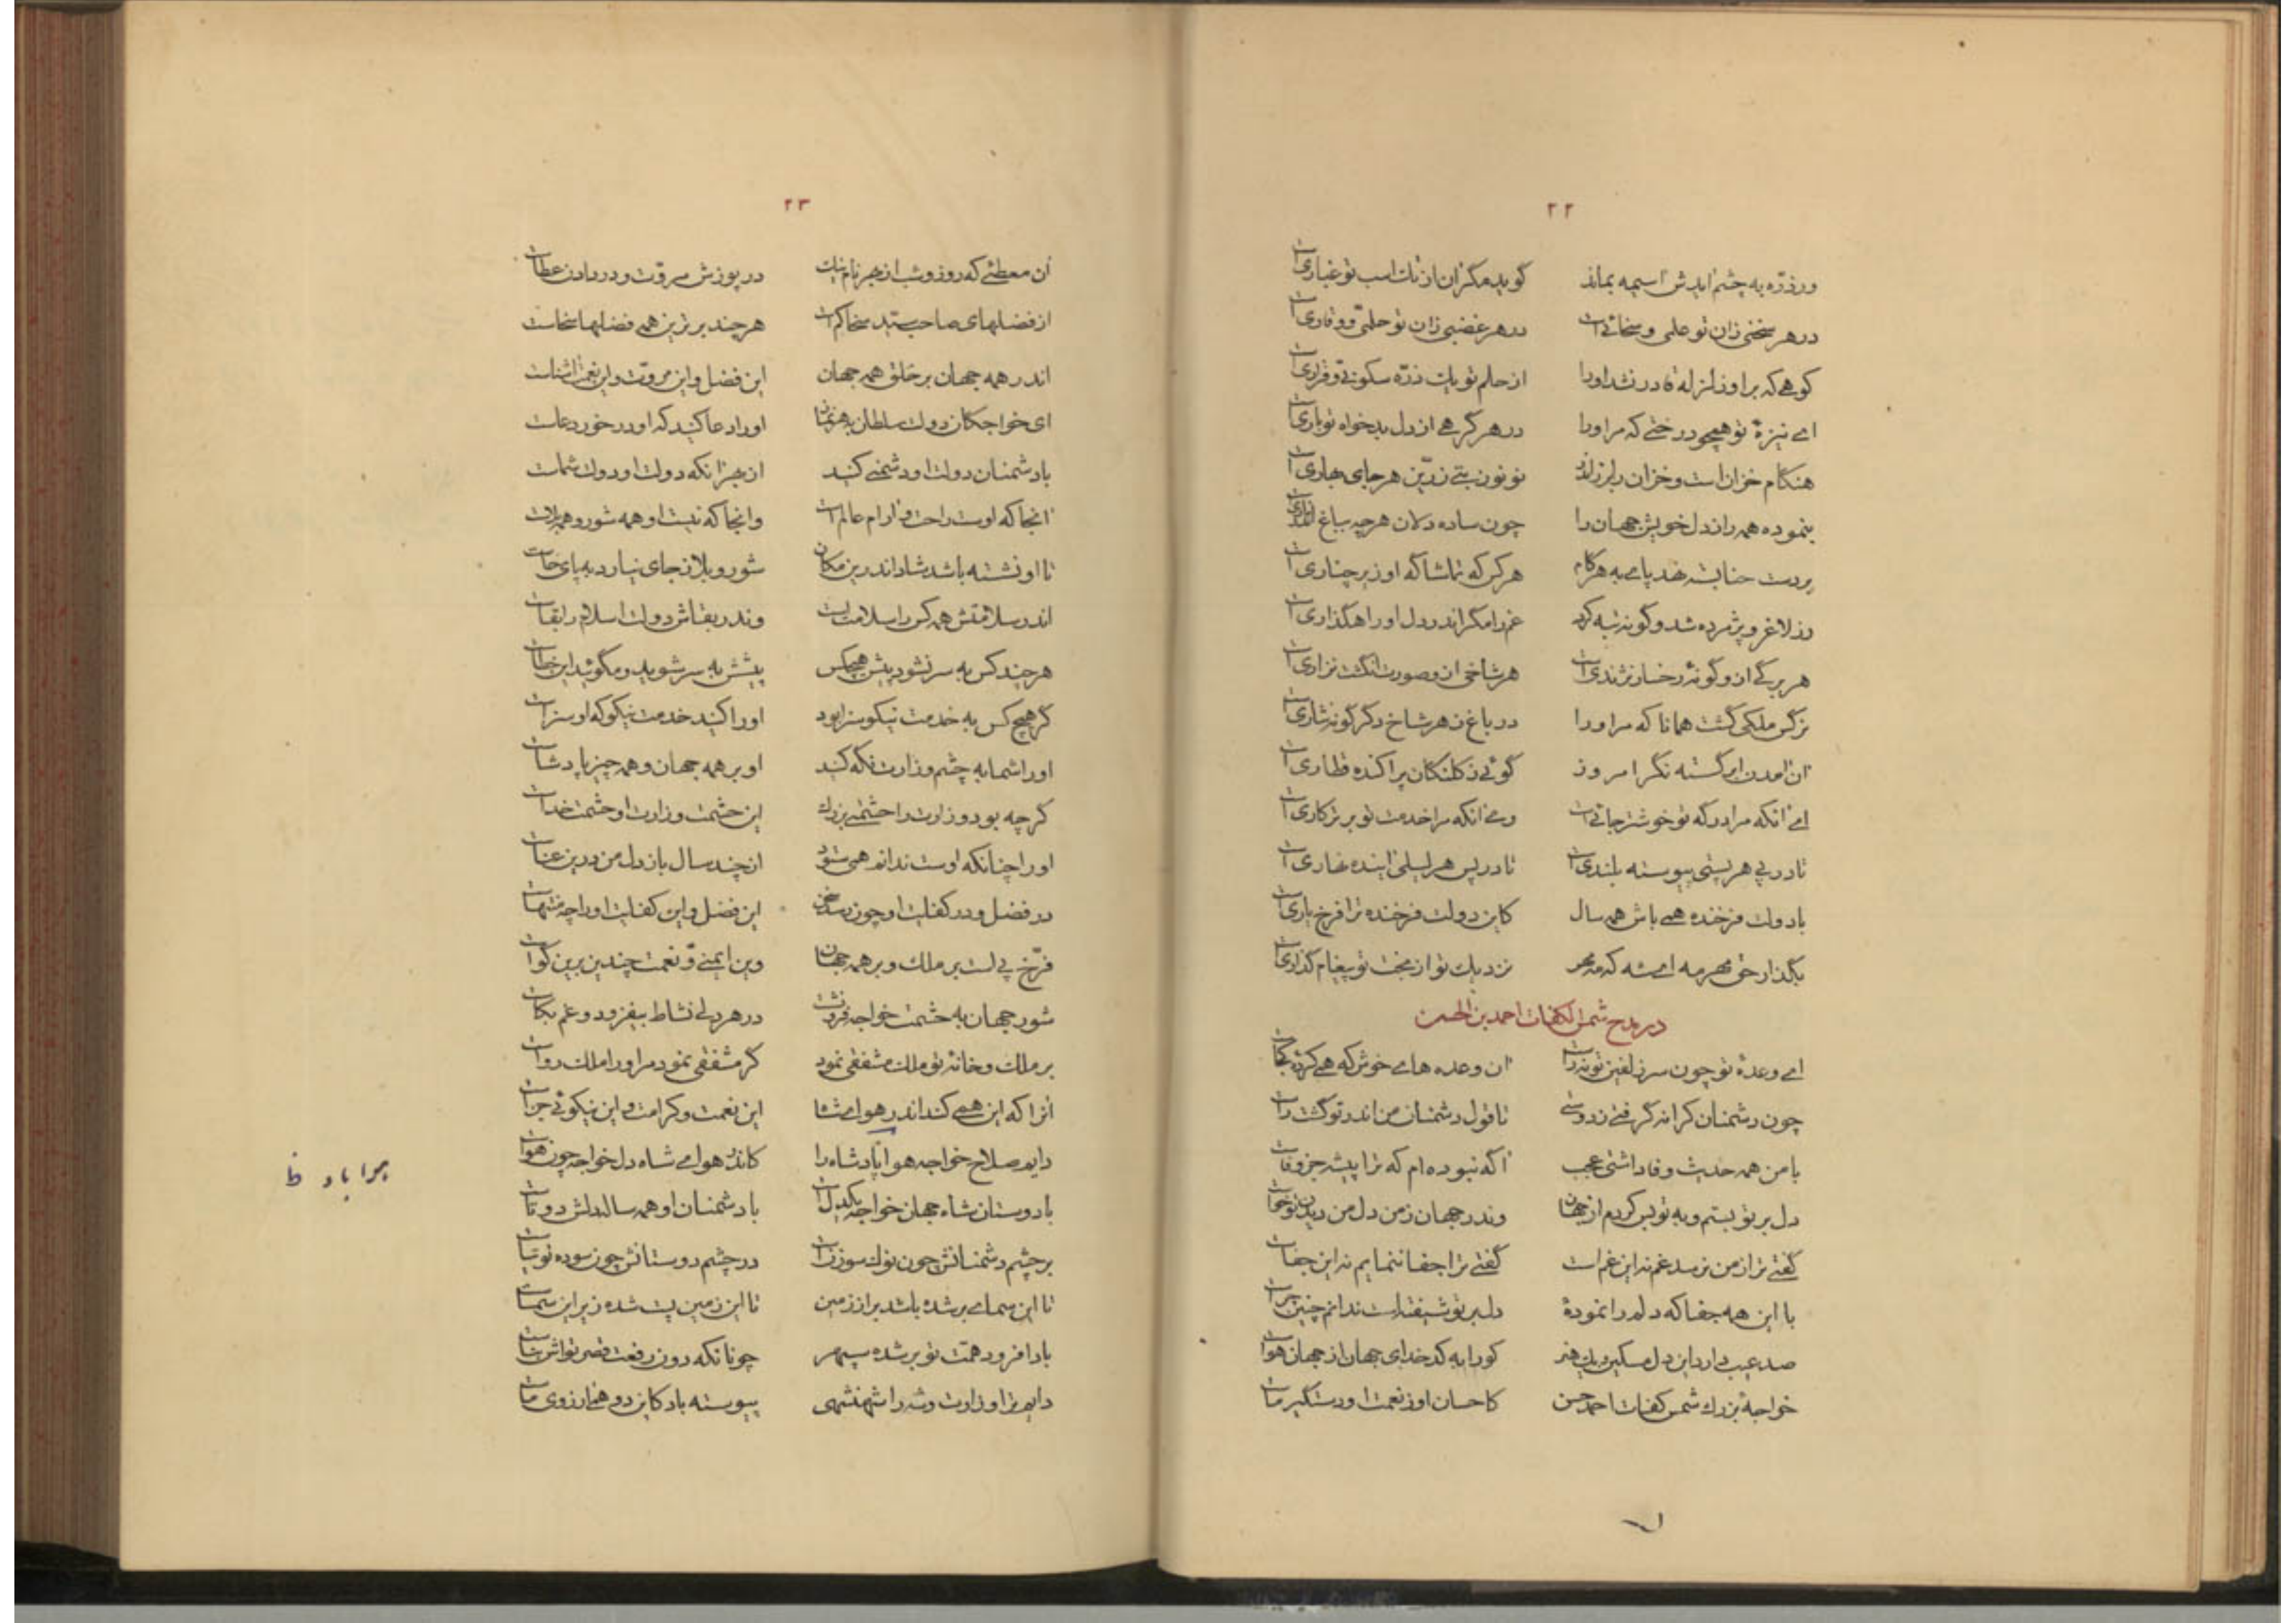 ۲۲
ور ذرّه به چشم ایدش اسیمه بماند گوید مگر ان از تك اسب تو غباری است
در هر سخنی زان تو علمی و سخائی است در هر غضبی زان تو حلمی و وقاری است
کوهی که بر او زلزله قادر نشد او را از حلم تو یك ذرّه سکونی و قراری است
ای نیزهٔ تو همچو درختی که مر او را در هر گرهی از دل بدخواه تو باری است
هنکام خزان است و خزان را به رز اندر نو نو ز بتی زرّین هر جای بهاری است
بنموده همه راز دل خویش جهان را چون ساده دلان هر چه بباغ اندر
بر دست حنا بسته نهد پای به هر کام هر کس که تماشاگه او زیر چناری است
رز لاغر و پژمرده شد و گونه تبه کرد غم را مگر اندر دل او راهگذاری است
هر برگی از و گونهٔ رخسار نژندی است هر شاخی از و صورت انگشت نزاری است
نرگس ملکی گشت همانا که مر او را در باغ ز هر شاخ دگر گونه نثاری است
ان امدن ابر گسسته نگر امروز گوئی ز کلنکان پراکنده قطاری است
ای انکه مرا درگه تو خوشتر جائی است وی انکه مرا خدمت تو برتر کاری است
تا در پی هر پستی پیوسته بلندی است تا در پس هر لیلی اینده نهاری است
با دولت فرخنده همی باش همه سال کاین دولت فرخنده ترا فرخ یاری است
بگذار حق مهر مه ای شه که مه مهر نزدیك تو از بخت تو پیغام گذاری است
در مدح شمس الکفات احمد بن الحسن
ای وعدهٔ تو چون سر زلفین تو نه راست ان وعده های خوش که همی کردهٔ کجاست
چون دشمنان کرانه گرفتی ز دوستی تا قول دشمنان من اندر تو گشت راست
با من همه حدیث وفا داشتی عجب اگه نبوده ام که ترا پیشه جز وفاست
دل بر تو بستم و به تو بس کردم از جهان وندر جهان ز من دل من دیدن تو خواست
گفتی ترا ز من نرسد غم نه این غم است گفتی ترا جفا ننمایم نه این جفاست
با این همه جفا که دلم را نمودهٔ دل بر تو شیفته است ندانم چنین چراست
صد عیب دارد این دل مسکین و یك هنر کو را به کدخدای جهان از جهان هواست
خواجهٔ بزرك شمس کفات احمد حسن کاحسان او ز نعمت او دستگیر ماست
۲۳
ان معطئی که روز و شب از بهر نام نیك در پوزش مروّت و در دادن عطاست
از فضلهای صاحب سید سخا کم است هر چند برترین همه فضلها سخاست
اندر همه جهان بر خلق همه جهان این فضل و این مروّت و این نعمت اشناست
ای خواجکان دولت سلطان او را دعا کنید که او در خور دعاست
با دشمنان دولت او دشمنی کنید از بهر انکه دولت او دولت شماست
انجا که اوست راحت و ارام عالم است وانجا که نیست او همه شور و همه بلاست
تا او نشسته باشد شاد اندرین مکان شور و بلا ز جای نیارد به پای خاست
اندر سلامتش همه کس را سلامت است وندر بقاش دولت اسلام را بقاست
هر چند کس به سر نشود پیش هیچکس پیشش به سر شوید و مگوئید این خطاست
گر هیچ کس به خدمت نیکو سزا بود او را کنید خدمت نیکو که او سزاست
او را شما به چشم وزارت نگه کنید او بر همه جهان و همه چیز پادشاست
گرچه بود وزارت را حشمتی بزرك این حشمت وزارت او حشمت خداست
او را چنانکه اوست ندانم همی ستود از چند سال باز دل من درین عناست
در فضل و در کفایت او چون رسد سخن این فضل و این کفایت او را چه منتهاست
فرّخ پی است بر ملك و بر همه جهان وین ایمنی و نعمت چندین برین گواست
شور جهان به حشمت خواجه فرو نشست در هر دلی نشاط بیفزود و غم بکاست
بر ملك و خانهٔ تو ملك مشفقی نمود گر مشفقی نمود مر او را ملك رواست
انرا که این همی کند اندر هوای شا این نعمت و کرامت و این نیکوئی جزاست
دایم صلاح خواجه هوا پادشاه را کاندر هوای شاه دل خواجه چون هواست
هرا باد خ
با دوستان شاه جهان خواجه یکدل است با دشمنان او همه ساله دلش دوتاست
بر چشم دشمنانش چون نوك سوزن است در چشم دوستانش چون سوده توتیاست
تا این سمای بر شده باشد بر از زمین تا این زمین پست شده زیر این سماست
باد افرود همّت تو بر شده سپهر چونانکه دون رفعت قصر تو اش
دایم ترا وزارت و شه را شهنشهی پیوسته باد کاین دو همی ارزوی ماست